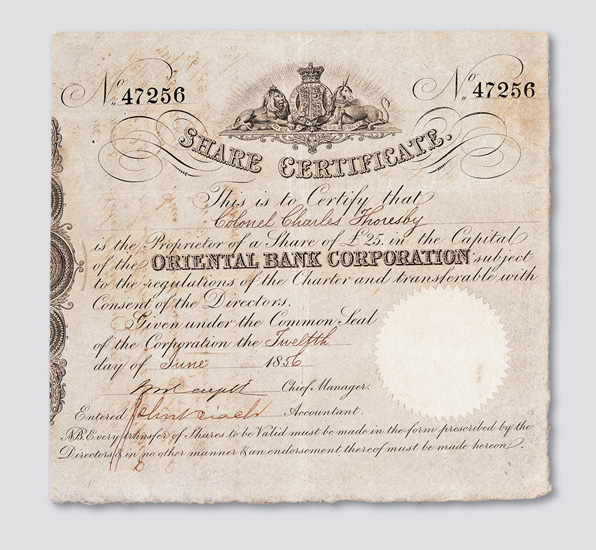 No 47256
No 47256
SHARE CERTIFICATE.
This is to Certify that
Colonel Charles Thoresby
is the Proprietor of a Share of £25. in the Capital
of the ORIENTAL BANK CORPORATION subject
to the regulations of the Charter and transferable with
Consent of the Directors.
Given under the Common Seal
of the Corporation the Twelfth
day of June 1856
Chief Manager.
Entered Accountant.
N.B. Every transfer of Shares to be Valid must be made in the form prescribed by the
Directors & in no other manner & an endorsement thereof must be made hereon.